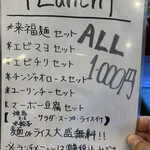 Lunch
*来福麺セット
*エビマヨ セット
*エビチリ セット
*チンジャオロースセット
*ユーリンチーセット
*マーボー豆腐セット
ALL
1000円
サラダ・スープ・ライス付
麺orライス大盛無料!!